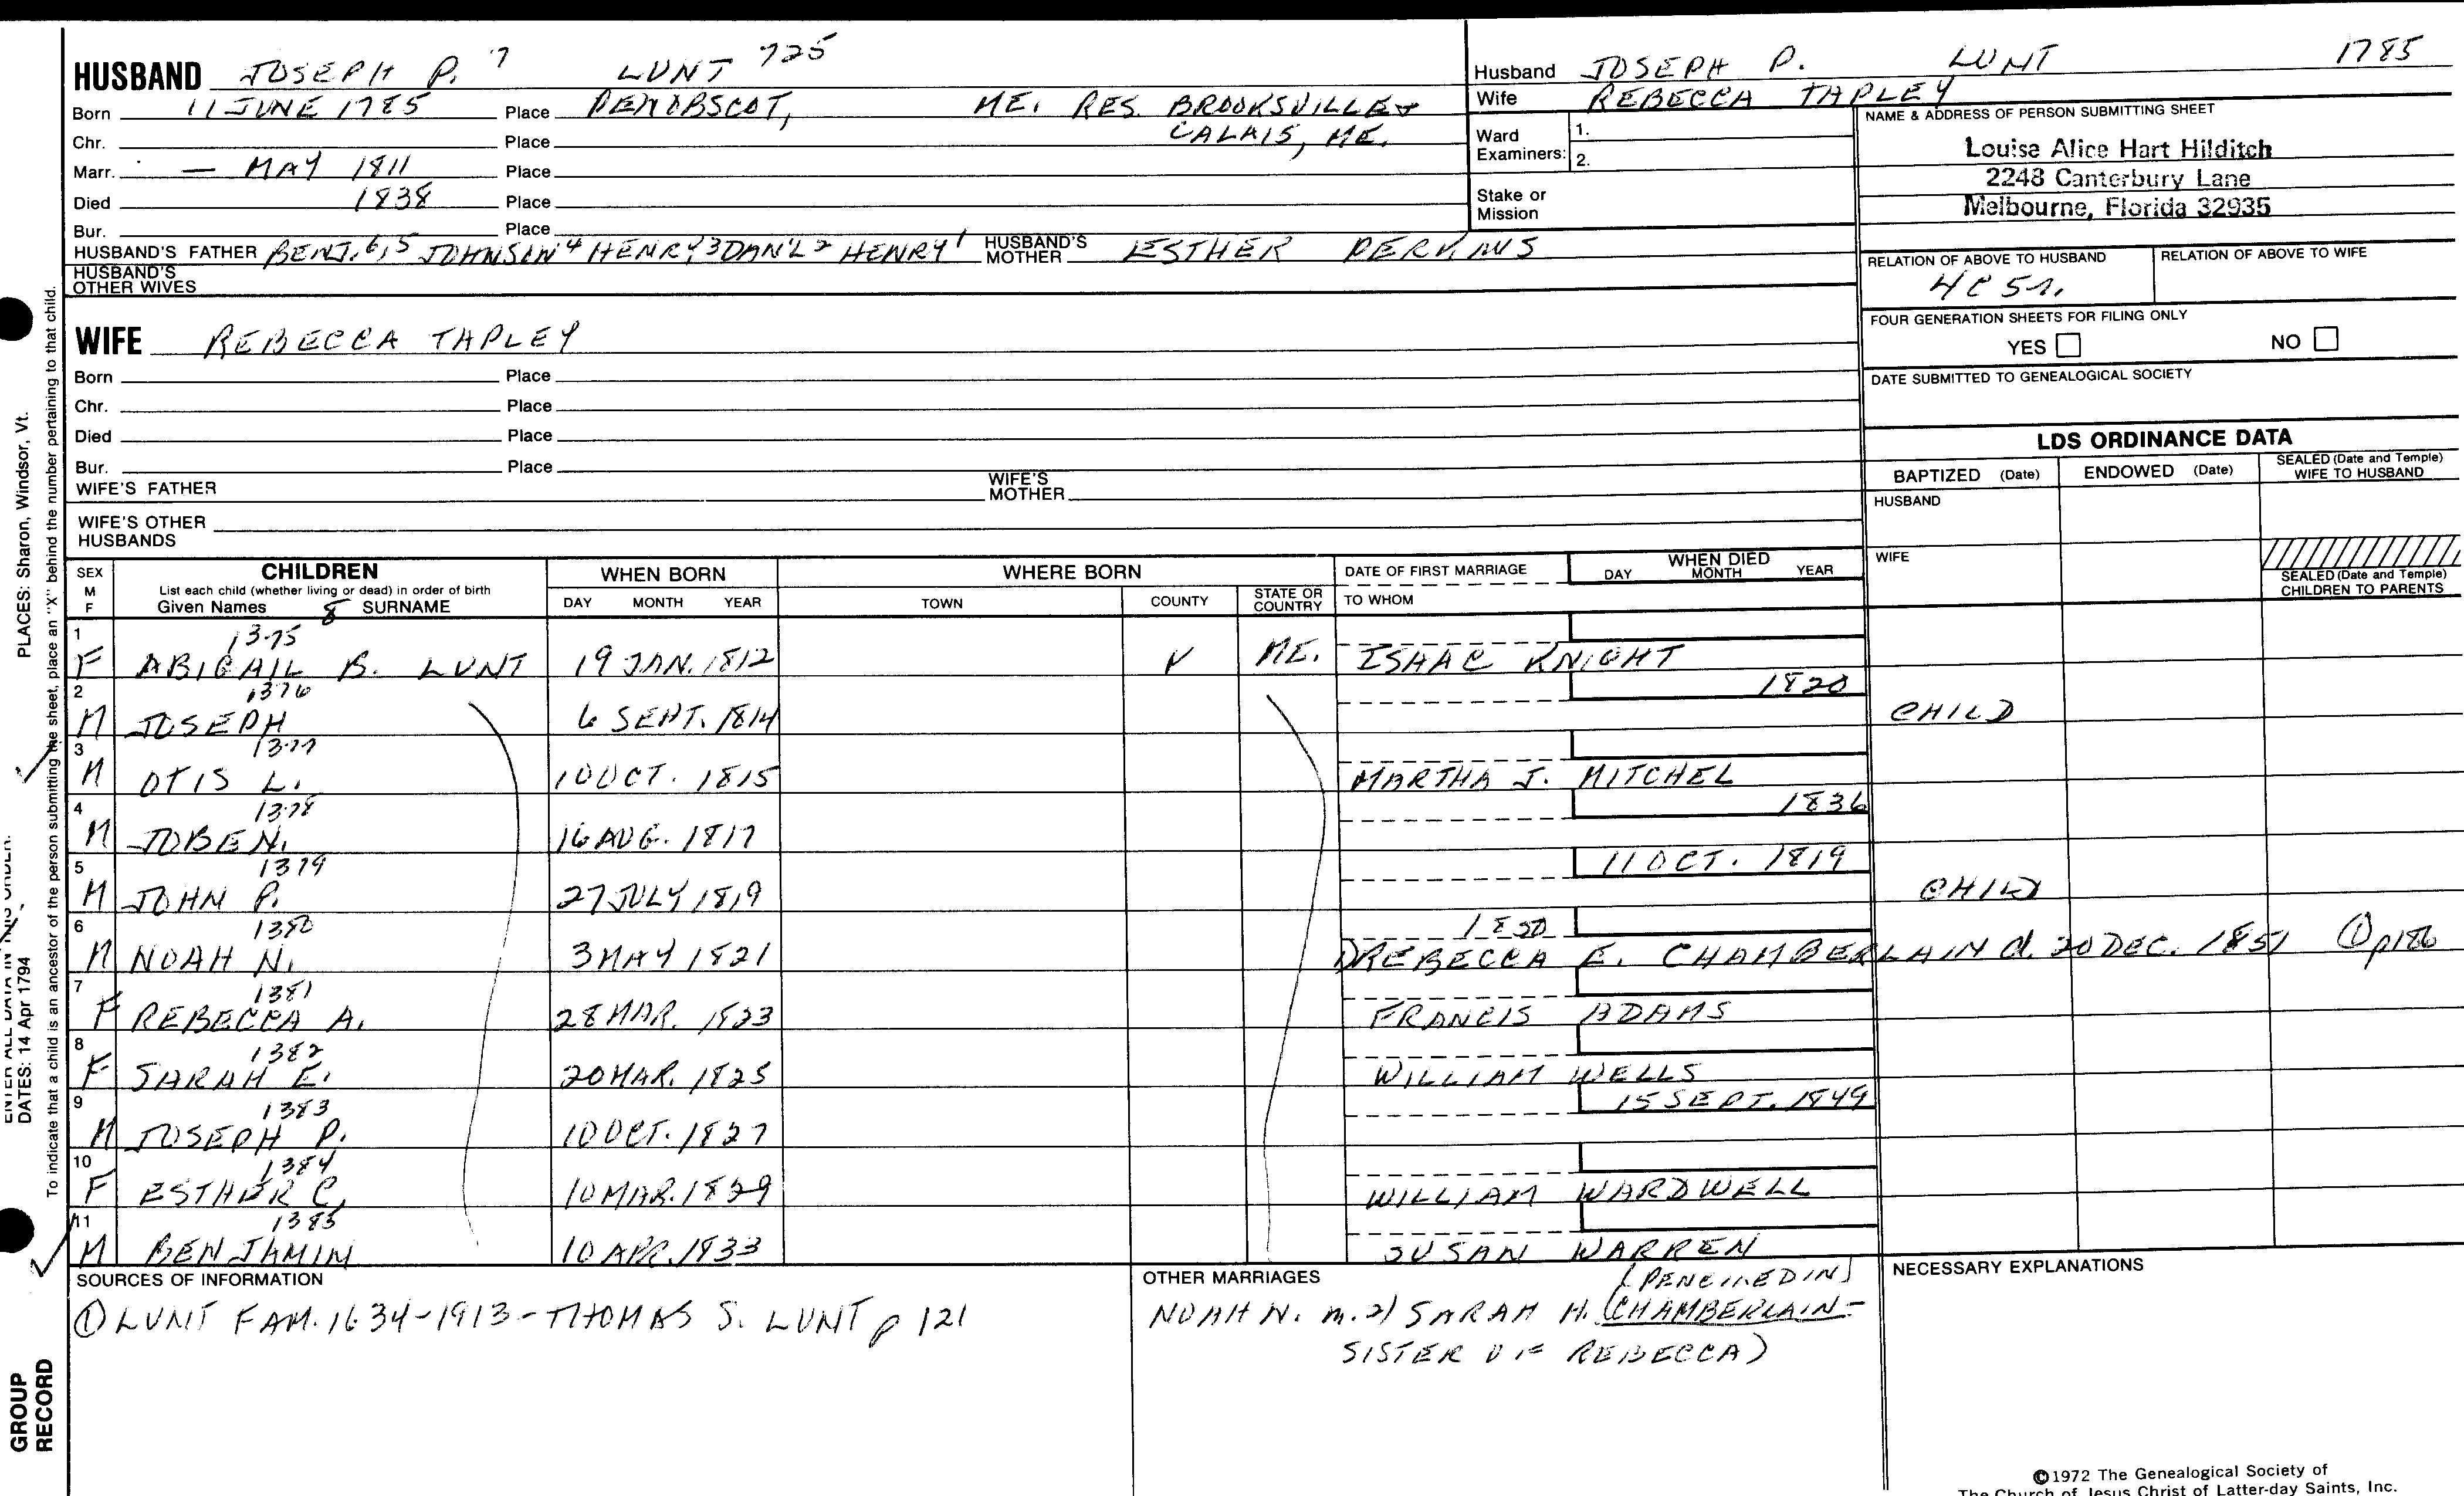 HUSBAND JOSEPH P. 7 LUNT 725
Born 11 JUNE 1785 Place PENOBSCOT, ME. RES. BROOKSVILLE &
CALAIS, ME.
Chr. Place
Marr. — MAY 1811 Place
Died 1838 Place
Bur. Place
HUSBAND'S FATHER BENJ. 6,5 JOHNSON 4 HENRY 3 DAN'L 2 HENRY 1 HUSBAND'S MOTHER ESTHER PERKINS
HUSBAND'S OTHER WIVES
WIFE REBECCA TAPLEY
Born Place
Chr. Place
Died Place
Bur. Place
WIFE'S FATHER WIFE'S MOTHER
WIFE'S OTHER HUSBANDS
Husband JOSEPH P. LUNT 1785
Wife REBECCA TAPLEY
Ward Examiners: 1.
2.
Stake or Mission
NAME & ADDRESS OF PERSON SUBMITTING SHEET
Louise Alice Hart Hilditch
2248 Canterbury Lane
Melbourne, Florida 32935
RELATION OF ABOVE TO HUSBAND RELATION OF ABOVE TO WIFE
4C 5r.
FOUR GENERATION SHEETS FOR FILING ONLY
YES NO
DATE SUBMITTED TO GENEALOGICAL SOCIETY
LDS ORDINANCE DATA
BAPTIZED (Date) ENDOWED (Date) SEALED (Date and Temple) WIFE TO HUSBAND
HUSBAND
WIFE
SEALED (Date and Temple) CHILDREN TO PARENTS
SEX M F CHILDREN WHEN BORN WHERE BORN DATE OF FIRST MARRIAGE WHEN DIED
List each child (whether living or dead) in order of birth
Given Names 8 SURNAME DAY MONTH YEAR TOWN COUNTY STATE OR COUNTRY TO WHOM DAY MONTH YEAR
1 1375
F ABIGAIL B. LUNT 19 JAN. 1812 ME. ISAAC KNIGHT
2 1376 1820
M JOSEPH 6 SEPT. 1814 CHILD
3 1377
M OTIS L. 10 OCT. 1815 MARTHA J. MITCHEL
4 1378 1836
M JOBE N. 16 AUG. 1817
5 1379 11 OCT. 1819
M JOHN P. 27 JULY 1819 CHILD
6 1380 1850
M NOAH N. 3 MAY 1821 1) REBECCA E. CHAMBERLAIN d. 20 DEC. 1851 ① p186
7 1381
F REBECCA A. 28 MAR. 1823 FRANCIS ADAMS
8 1382
F SARAH E. 20 MAR. 1825 WILLIAM WELLS
9 1383 15 SEPT. 1849
M JOSEPH P. 10 OCT. 1827
10 1384
F ESTHER C. 10 MAR. 1829 WILLIAM WARDWELL
11 1385
M BENJAMIN 10 APR. 1833 SUSAN WARREN
SOURCES OF INFORMATION
① LUNT FAM. 1634-1913 - THOMAS S. LUNT p 121
OTHER MARRIAGES
(PENCILED IN)
NOAH N. m. 2) SARAH H. (CHAMBERLAIN -
SISTER OF REBECCA)
NECESSARY EXPLANATIONS
©1972 The Genealogical Society of
The Church of Jesus Christ of Latter-day Saints, Inc.
PLACES: Sharon, Windsor, Vt.
ENTER ALL DATA IN THIS ORDER:
DATES: 14 Apr 1794
To indicate that a child is an ancestor of the person submitting the sheet, place an "X" behind the number pertaining to that child.
GROUP
RECORD